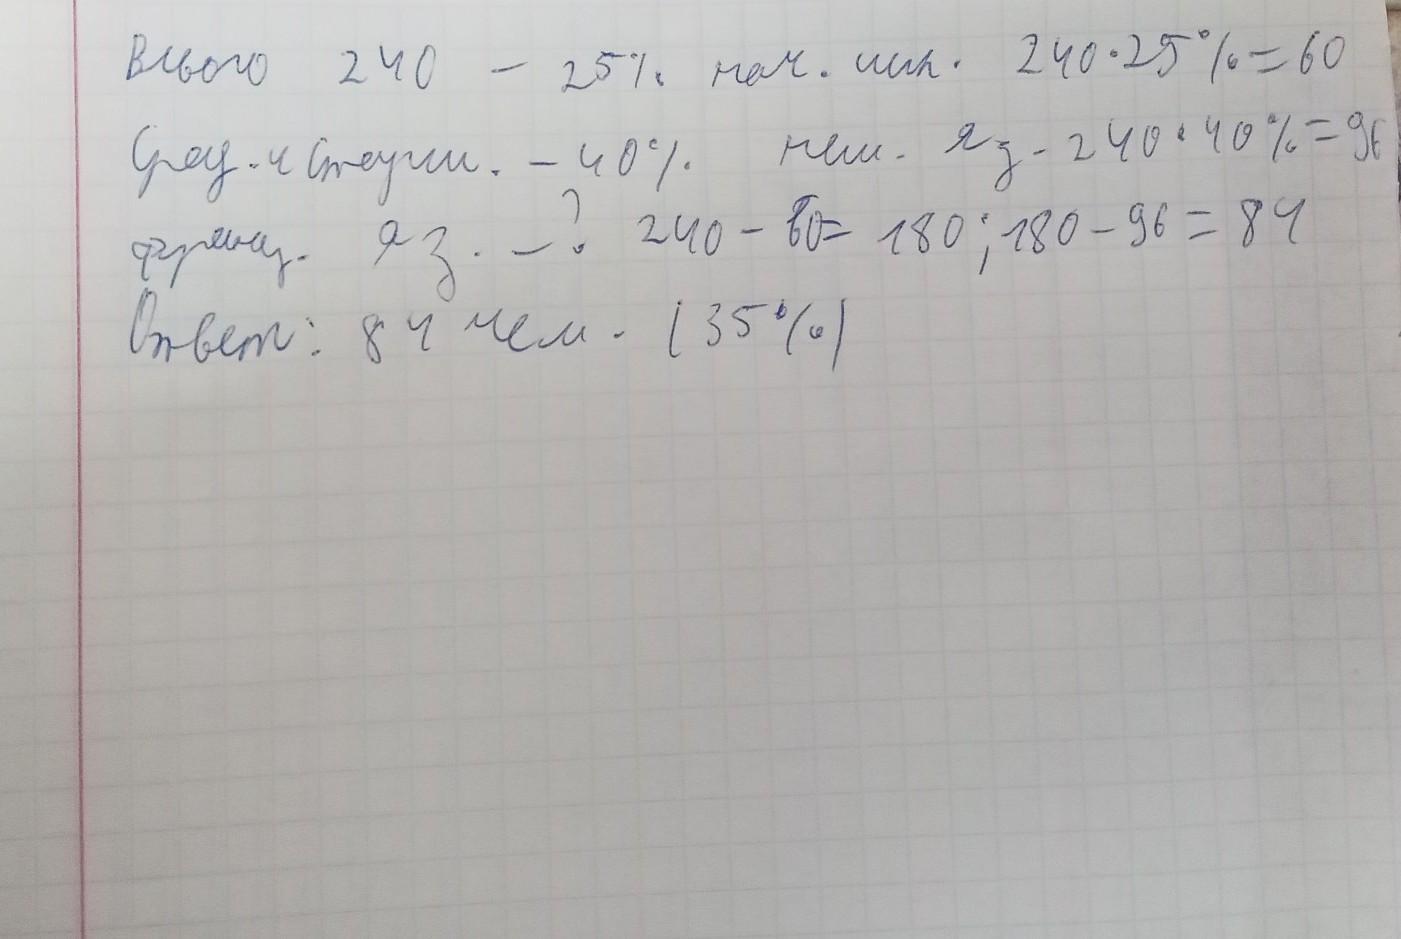 Всього 240 - 25% нач. шк. 240·25%=60
Сред. и старш. - 40% нем. яз - 240·40%=96
франц. яз. -? 240-60= 180; 180-96=84
Ответ: 84 чел. (35%)